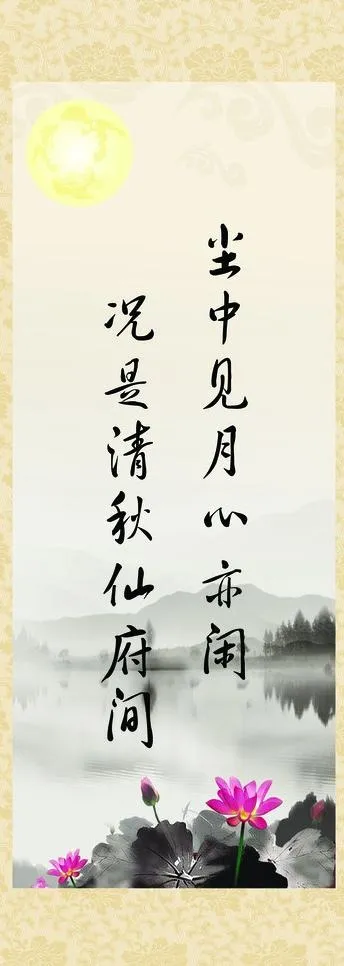 尘中见月心亦闲
况是清秋仙府间